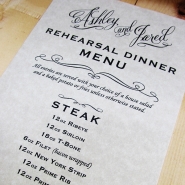 Ashley
and Jared
REHEARSAL DINNER
MENU
All entrees are served with your choice of a house salad
and a baked potato or fries unless otherwise stated.
STEAK
12oz Ribeye
12oz Sirloin
18oz T-Bone
6oz Filet (bacon wrapped)
12oz New York Strip
12oz Prime Rib
Prime